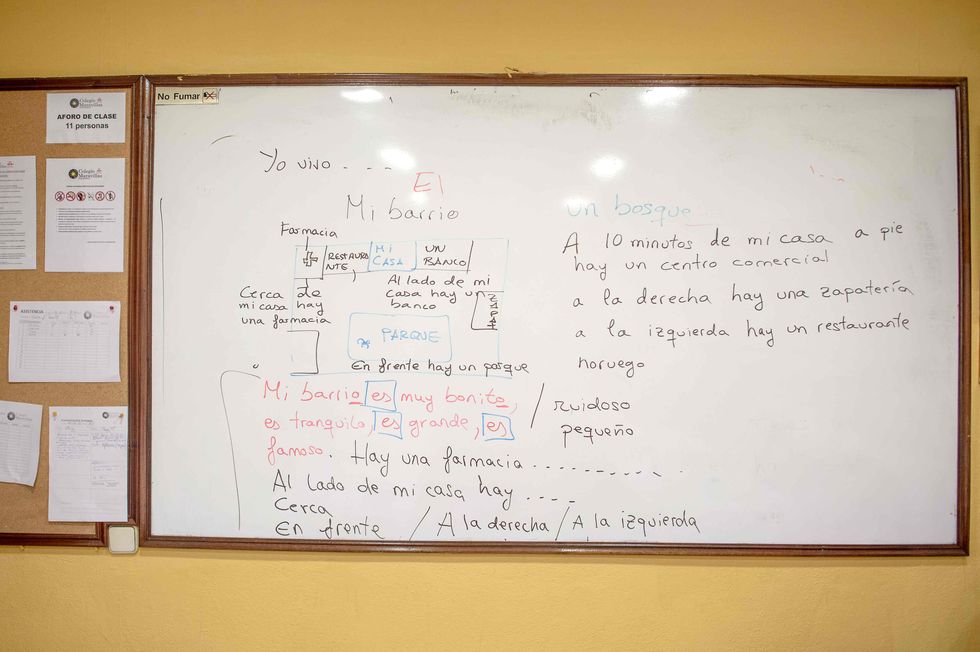 Colegio
Maravillas
AFORO DE CLASE
11 personas
Colegio
Maravillas
ASISTENCIA
No Fumar
Yo vivo - - - -
El
Mi barrio
Farmacia
RESTAURA
NTE
MI
CASA
UN
BANCO
Cerca de
mi casa hay
una farmacia
Al lado de mi
casa hay un
banco
ZAPAT
PARQUE
En frente hay un parque
Mi barrio es muy bonito,
es tranquilo, es grande, es
famoso. Hay una farmacia - - - - - - - - - -
Al lado de mi casa hay - - - -
Cerca
En frente / A la derecha / A la izquierda
/ ruidoso
pequeño
un bosque
A 10 minutos de mi casa a pie
hay un centro comercial
a la derecha hay una zapatería
a la izquierda hay un restaurante
noruego